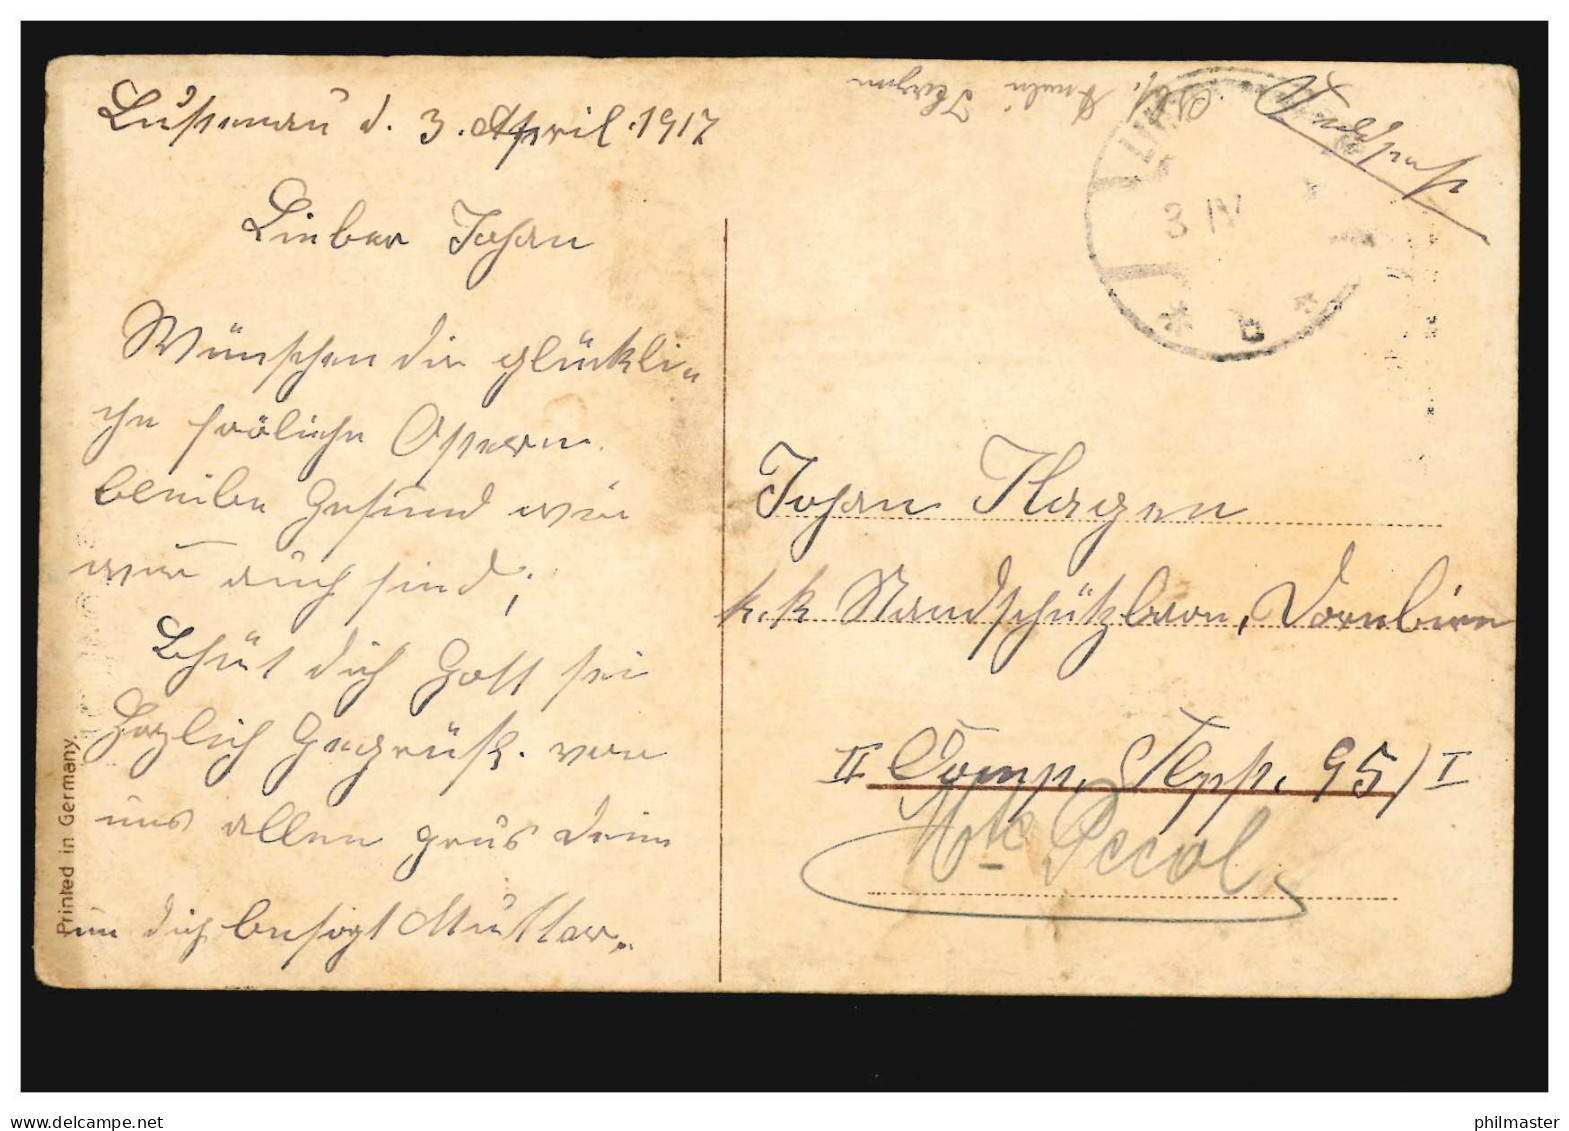 Lustenau d. 3. April. 1917
Lieber Johan
Wünschen dir glückli„
che fröliche Ostern.
bleibe Gesund wie
wir auch sind;
Bhüt dich Gott sei
Herzlich Gegrüßt. von
uns allen grus dein
um dich besorgt Mutter„
Printed in Germany.
Abs. Amalie Hagen
Feldpost
LU
3 IV
* b *
Johan Hagen
k.k Standschützbaon, Dornbirn
II Comp. Flpp. 95/I